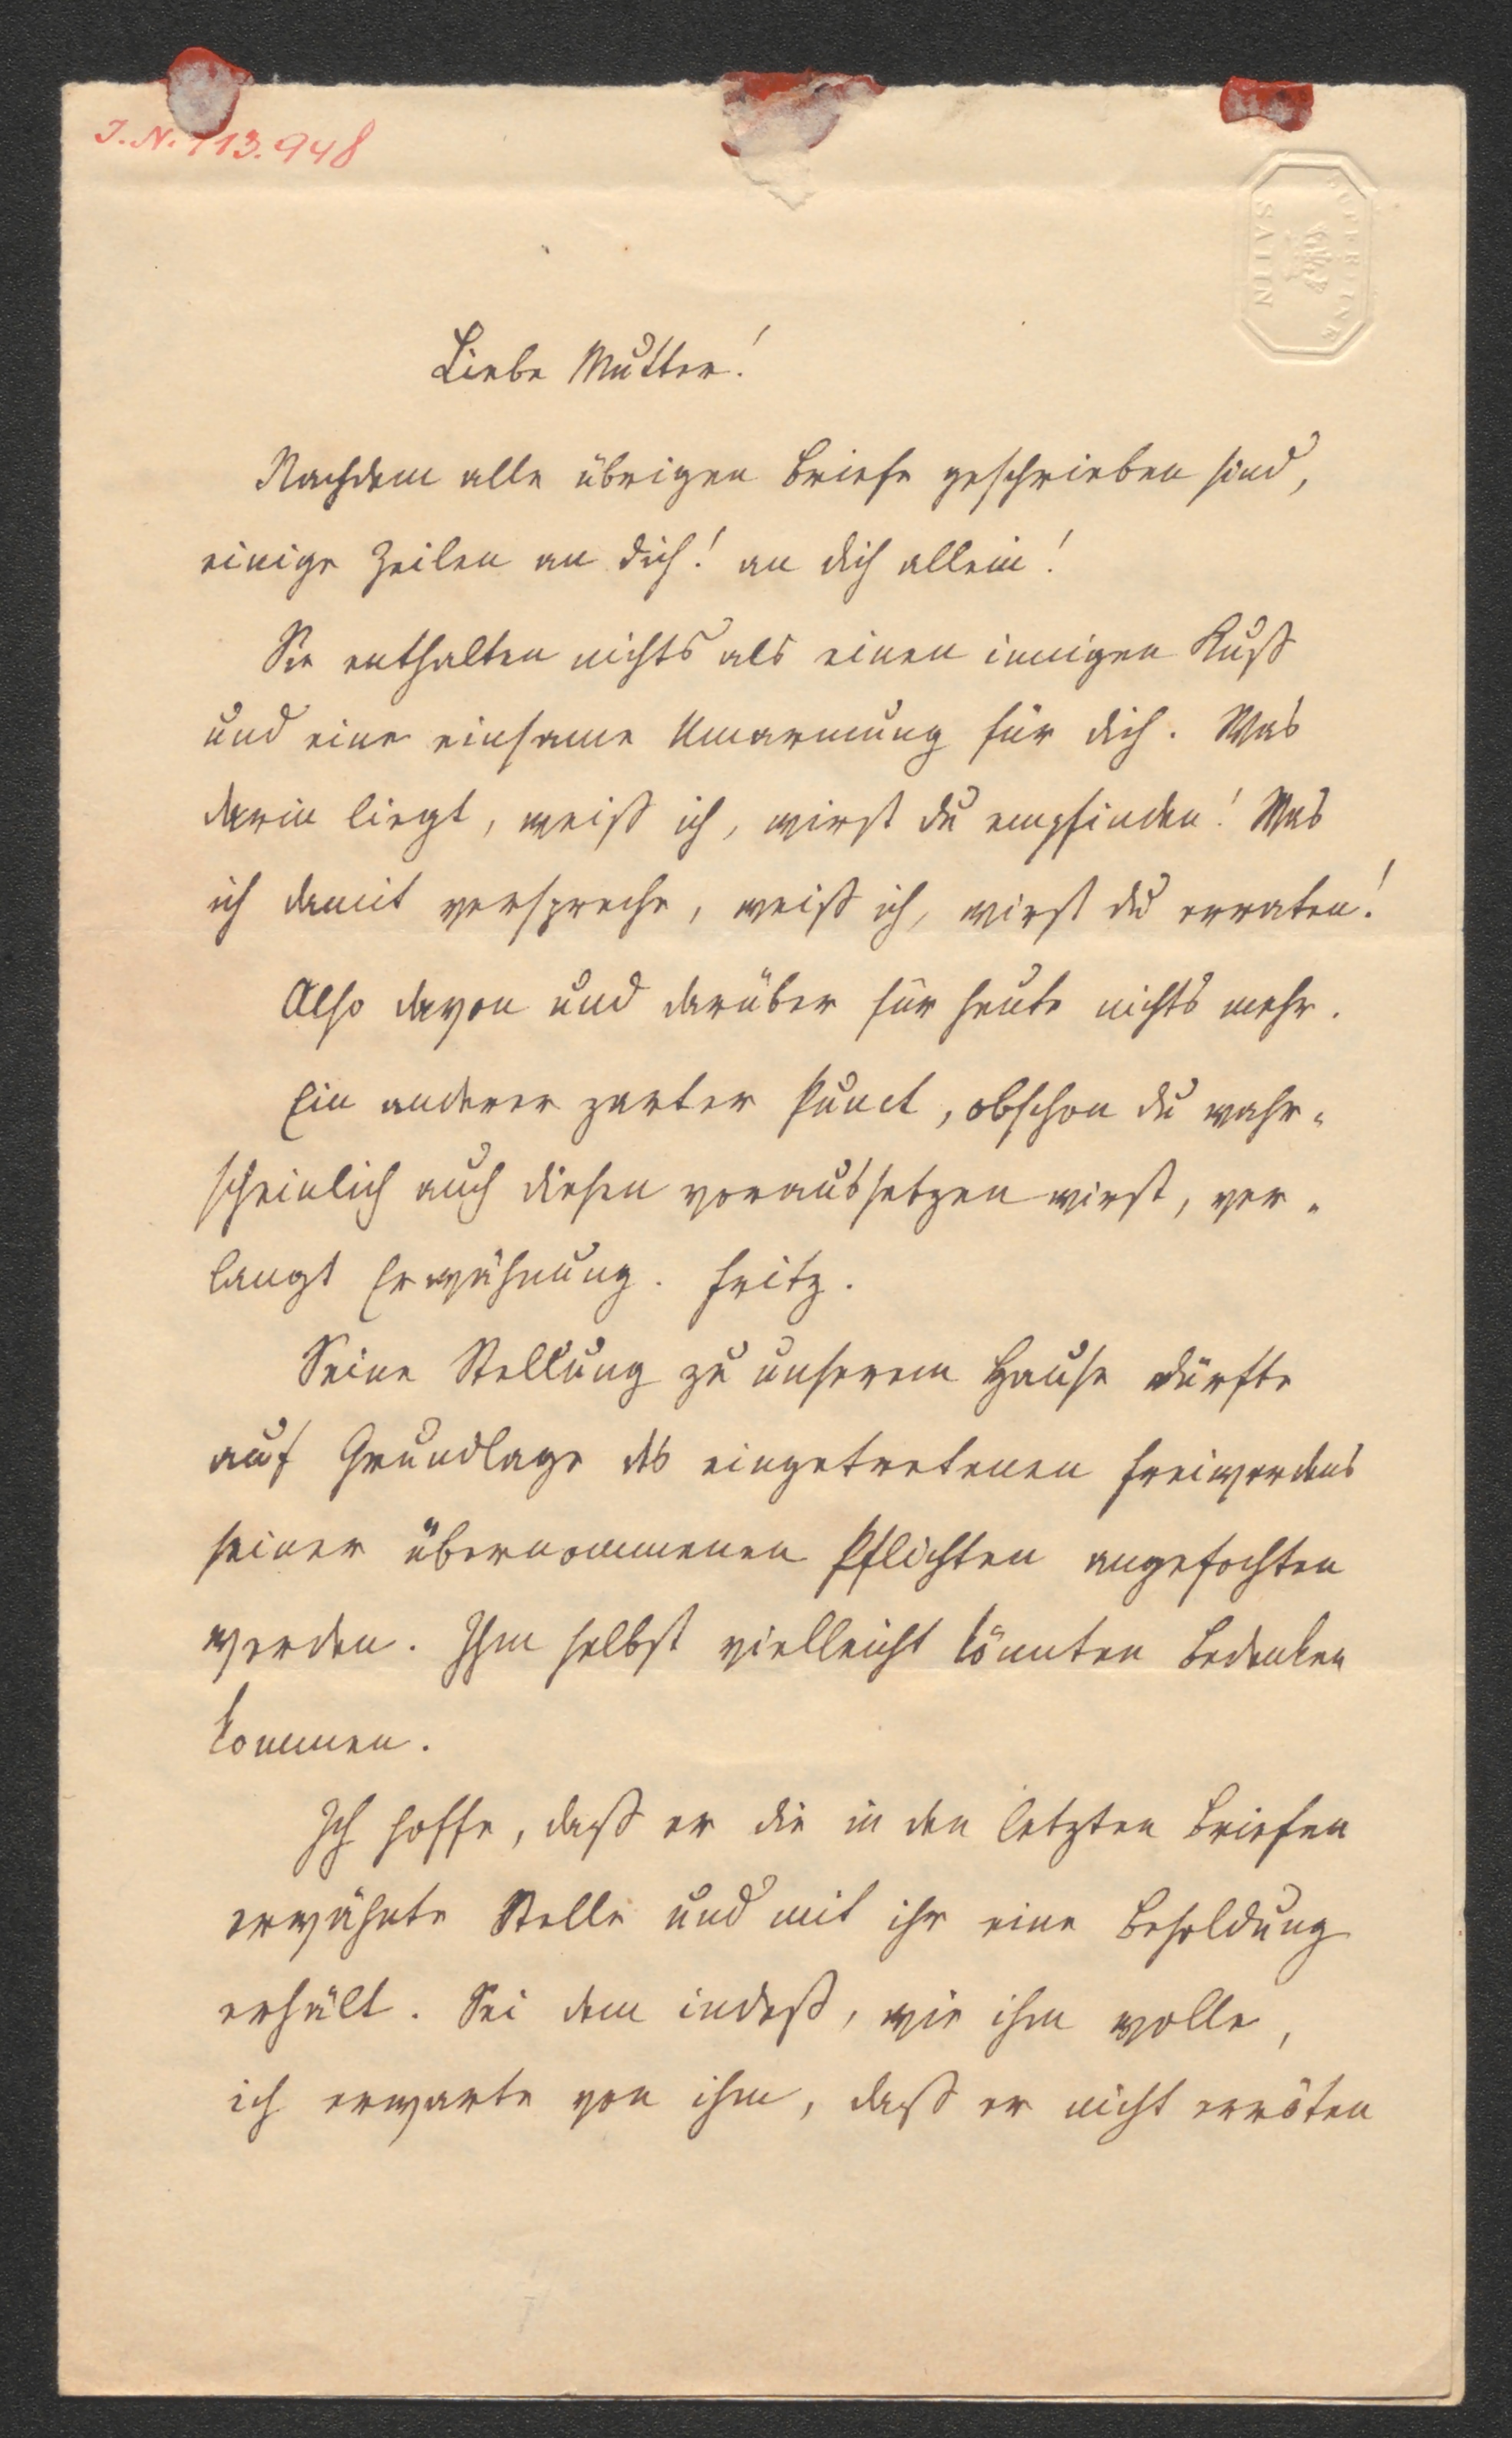 I.N. 113.948
SUPERFINE
SATIN
Liebe Mutter!
Nachdem alle übrigen Briefe geschrieben sind,
einige Zeilen an dich! an dich allein!
Sie enthalten nichts als einen innigen Kuß
und eine einsame Umarmung für dich. Was
darin liegt, weiß ich, wirst du empfinden! Was
ich damit verspreche, weiß ich, wirst du erraten!
Also davon und darüber für heute nichts mehr.
Ein anderer zarter Punct, obschon du wahr-
scheinlich auch diesen voraussetzen wirst, ver-
langt Erwähnung. Fritz.
Seine Stellung zu unserem Hause dürfte
auf Grundlage des eingetretenen Freiwerdens
seiner übernommenen Pflichten angefochten
werden. Ihm selbst vielleicht könnten Bedenken
kommen.
Ich hoffe, daß er die in den letzten Briefen
erwähnte Stelle und mit ihr eine Besoldung
erhält. Sei dem indeß, wie ihm wolle,
ich erwarte von ihm, daß er nicht erröten